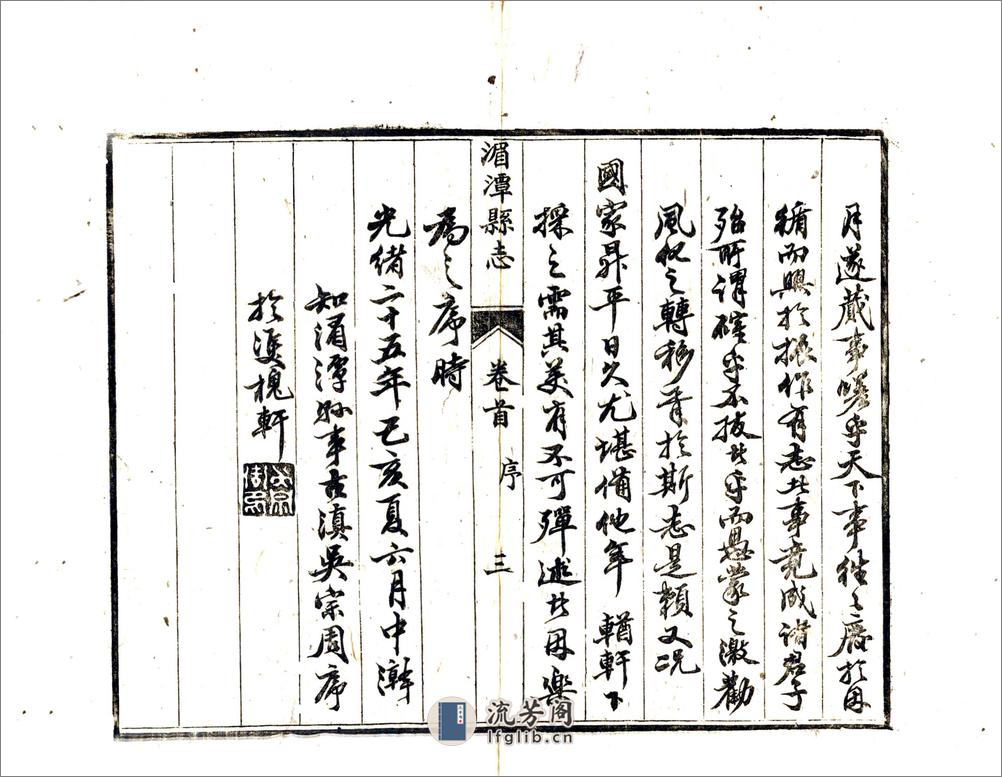 月遂蕆事嗟乎天下事往々廢於因
循而興於振作有志此事竟成諸君子
殆所謂確乎不拔此乎而愚蒙之激勸
風俗之轉移胥於斯志是賴又况
國家昇平日久尤堪備他年 輶軒下
採之需其美有不可殫述此因樂
湄潭縣志 卷首 序 三
為之序時
光緒二十五年己亥夏六月中澣
知湄潭縣事古滇吳宗周序
於湄槐軒
吳宗周印
流芳阁
lfglib.cn